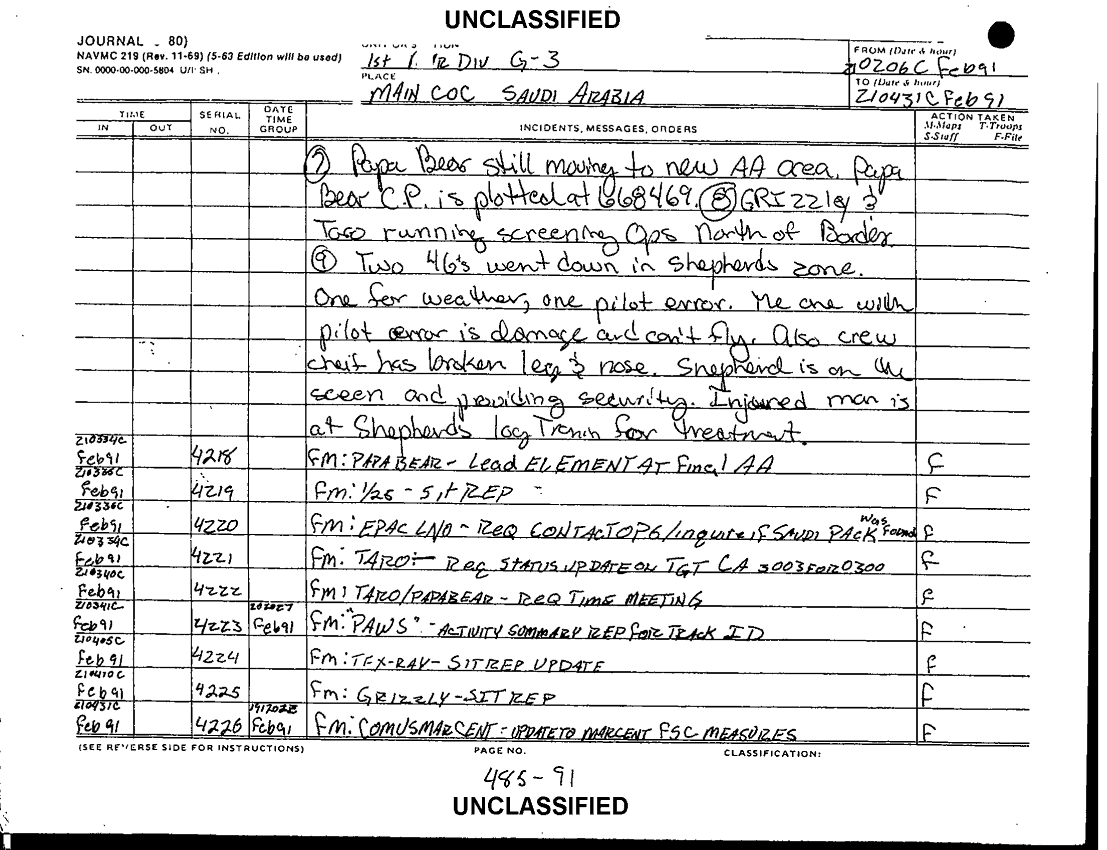 UNCLASSIFIED
JOURNAL - 80)
NAVMC 219 (Rev. 11-69) (5-63 Edition will be used)
SN. 0000-00-000-5804 U/I SH.
1st Div G-3
PLACE
MAIN COC SAUDI ARABIA
FROM (Date & hour)
210206C Feb91
TO (Date & hour)
210431C Feb 91
TIME
IN OUT
SERIAL NO.
DATE TIME GROUP
INCIDENTS, MESSAGES, ORDERS
ACTION TAKEN
M-Maps T-Troops
S-Staff F-File
⑦ Papa Bear still moving to new AA area. Papa
Bear C.P. is plotted at 668469. ⑧ &
Taro running screening Ops North of Border
⑨ Two 46's went down in Shepherds zone.
One for weather, one pilot error. The one with
pilot error is damage and can't fly. Also crew
cheif has broken leg & nose. Shepherd is on the
sceen and providing security. Injured man is
at Shepherd's log for treatment.
210334C
Feb91 4218 FM: PAPA BEAR - Lead ELEMENT AT Final AA F
Feb91 4219 Fm: 1/25 - SitREP - F
210336C
Feb91 4220 Fm: EPAC LNO - REQ CONTACT OPG/inquire if SAUDI PACK was Found F
210334C
Feb91 4221 Fm: TARO - Req STATUS UPDATE ON TGT CA 3003 FOR 0300 F
210340C
Feb91 4222 Fm: TARO/PAPABEAR - REQ TIME MEETING F
210341C
Feb91 4223 Feb91 Fm: "PAWS" - ACTIVITY SUMMARY REP FOR TRACK ID F
210405C
Feb 91 4224 Fm: TEX-RAY - SITREP UPDATE F
210410C
Feb91 4225 Fm: GRIZZLY - SITREP F
210431C 191202Z
Feb 91 4226 Feb91 Fm: COMUSMARCENT - UPDATE TO MARCENT FSC MEASURES F
(SEE REVERSE SIDE FOR INSTRUCTIONS)
PAGE NO.
CLASSIFICATION:
485-91
UNCLASSIFIED